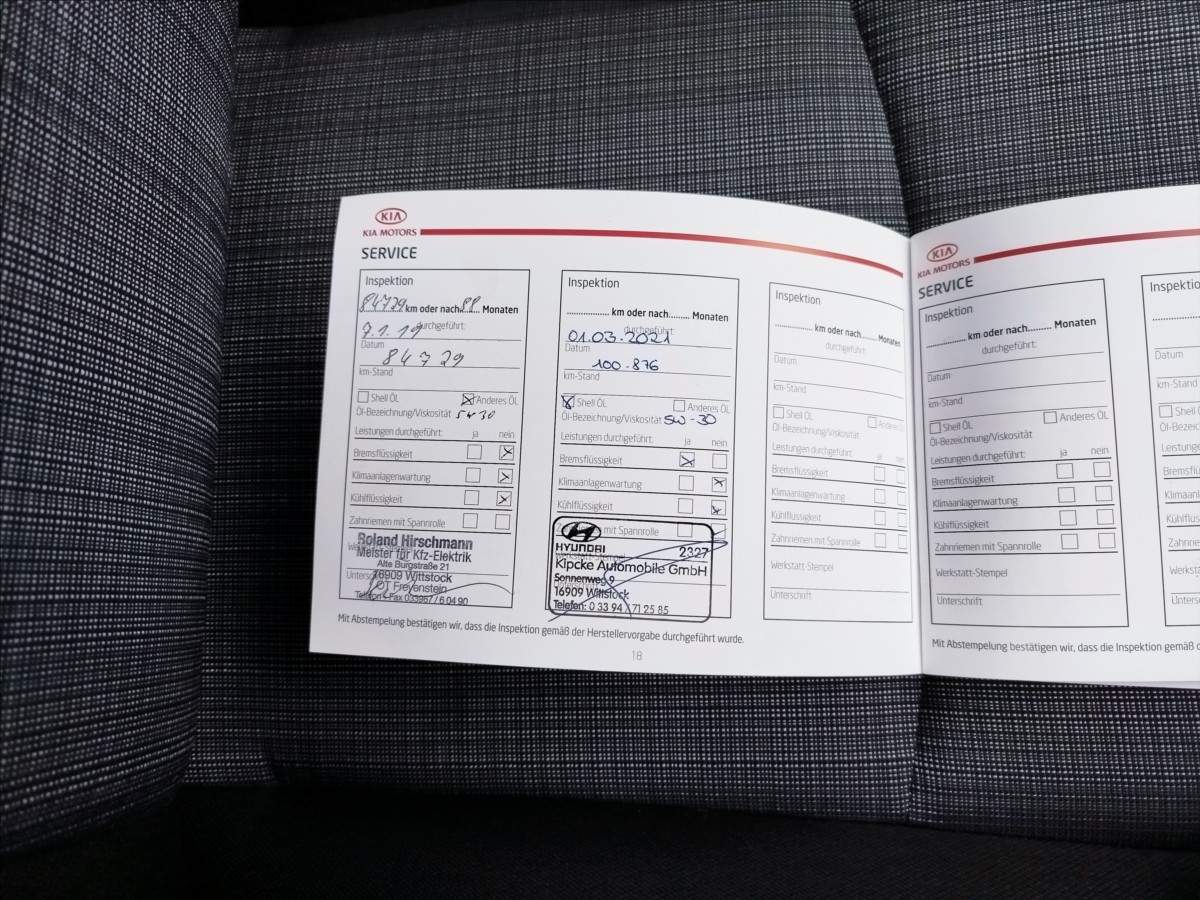 KIA
KIA MOTORS
SERVICE
Inspektion
84729 km oder nach 88 Monaten
7.1.19 durchgeführt:
Datum
84729
km-Stand
Shell ÖL Anderes ÖL
Öl-Bezeichnung/Viskosität 5W30
Leistungen durchgeführt: ja nein
Bremsflüssigkeit
Klimaanlagenwartung
Kühlflüssigkeit
Zahnriemen mit Spannrolle
Roland Hirschmann
Meister für Kfz-Elektrik
Alte Burgstraße 21
16909 Wittstock
OT Freyenstein
Telefon + Fax 033967 / 6 04 90
Inspektion
km oder nach Monaten
durchgeführt:
01.03.2021
Datum
100.876
km-Stand
Shell ÖL Anderes ÖL
Öl-Bezeichnung/Viskosität 5W-30
Leistungen durchgeführt: ja nein
Bremsflüssigkeit
Klimaanlagenwartung
Kühlflüssigkeit
mit Spannrolle
HYUNDAI 2327
Kipcke Automobile GmbH
Sonnenweg 9
16909 Wittstock
Telefon: 0 33 94 / 71 25 85
Inspektion
km oder nach Monaten
durchgeführt:
Datum
km-Stand
Shell ÖL Anderes ÖL
Öl-Bezeichnung/Viskosität
Leistungen durchgeführt: ja nein
Bremsflüssigkeit
Klimaanlagenwartung
Kühlflüssigkeit
Zahnriemen mit Spannrolle
Werkstatt-Stempel
Unterschrift
Mit Abstempelung bestätigen wir, dass die Inspektion gemäß der Herstellervorgabe durchgeführt wurde.
18
KIA
KIA MOTORS
SERVICE
Inspektion
km oder nach Monaten
durchgeführt:
Datum
km-Stand
Shell ÖL Anderes ÖL
Öl-Bezeichnung/Viskosität
Leistungen durchgeführt: ja nein
Bremsflüssigkeit
Klimaanlagenwartung
Kühlflüssigkeit
Zahnriemen mit Spannrolle
Werkstatt-Stempel
Unterschrift
Mit Abstempelung bestätigen wir, dass die Inspektion gemäß d
Inspektio
Datum
km-Stand
Shell
Öl-Bezei
Leistung
Bremsfl
Klimaa
Kühlflü
Zahnrie
Werksta
Unters